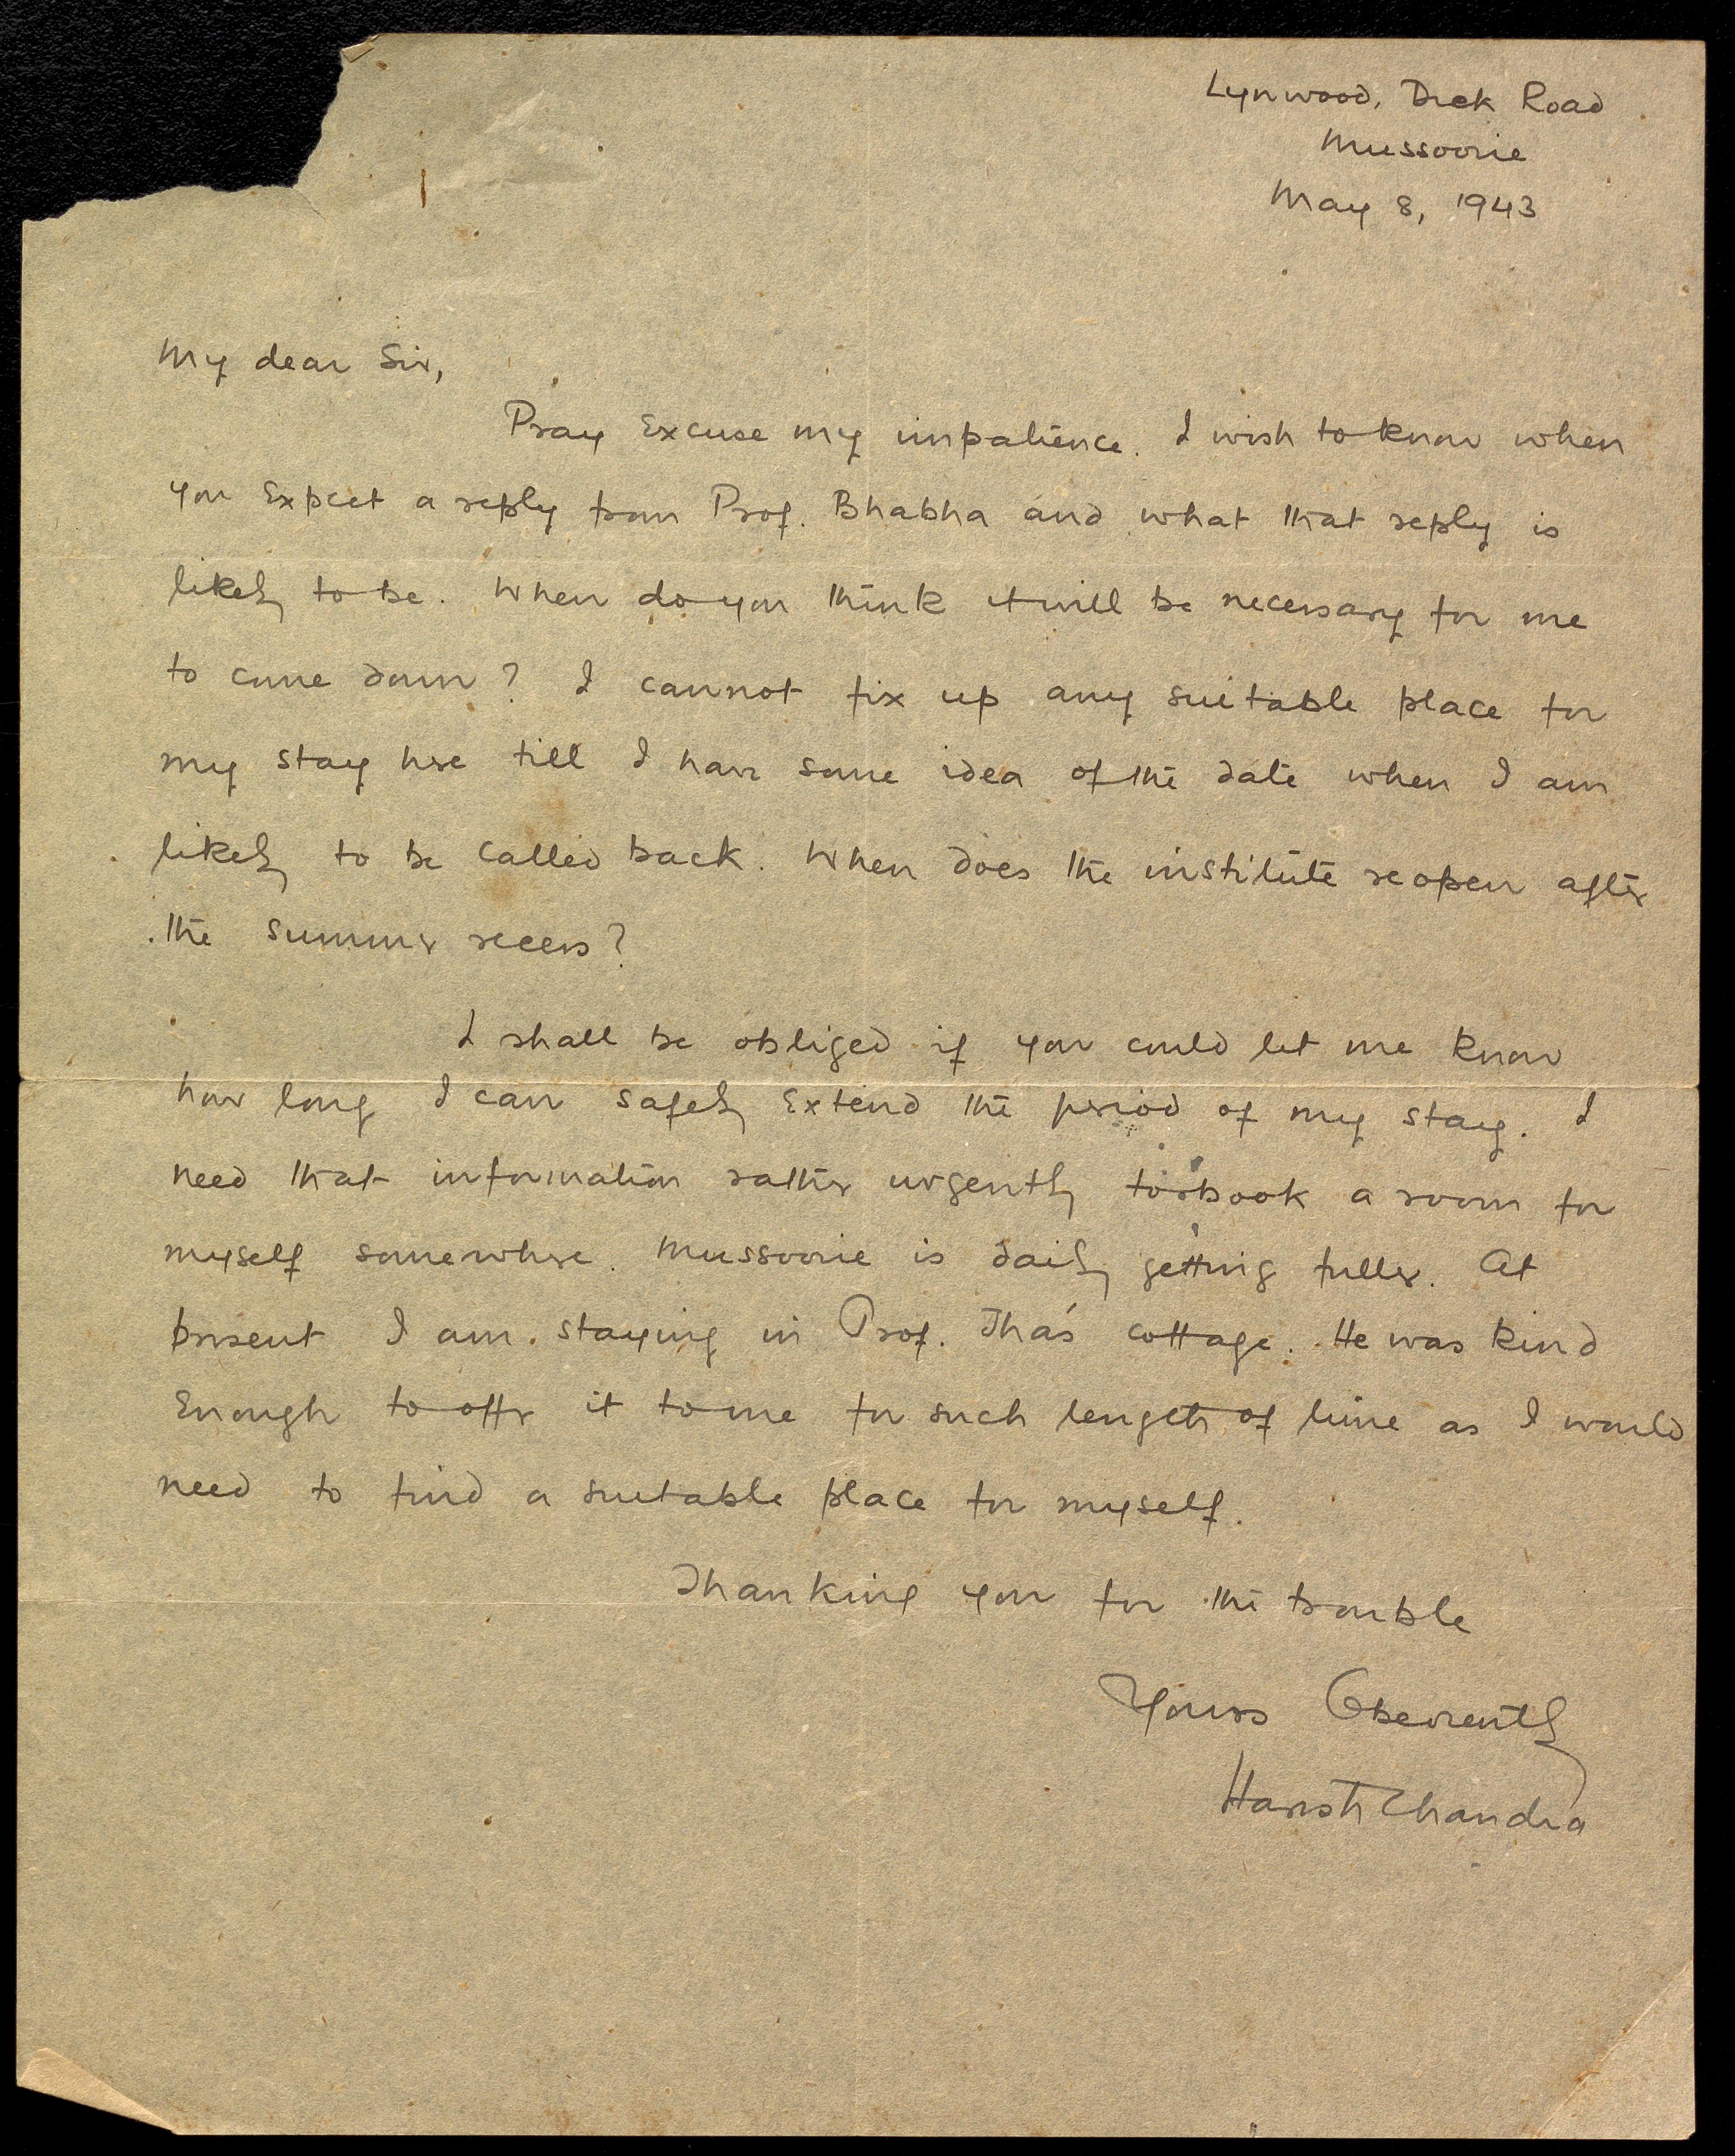 Lynwood, Dick Road
Mussoorie
May 8, 1943
My dear Sir,
Pray excuse my impatience. I wish to know when
you expect a reply from Prof. Bhabha and what that reply is
likely to be. When do you think it will be necessary for me
to come down? I cannot fix up any suitable place for
my stay here till I have some idea of the date when I am
likely to be called back. When does the institute reopen after
the summer recess?
I shall be obliged if you could let me know
how long I can safely extend the period of my stay. I
need that information rather urgently to book a room for
myself somewhere. Mussoorie is daily getting fuller. At
present I am staying in Prof. Jha's cottage. He was kind
enough to offer it to me for such length of time as I would
need to find a suitable place for myself.
Thanking you for the trouble
Yours Obediently
Harish Chandra